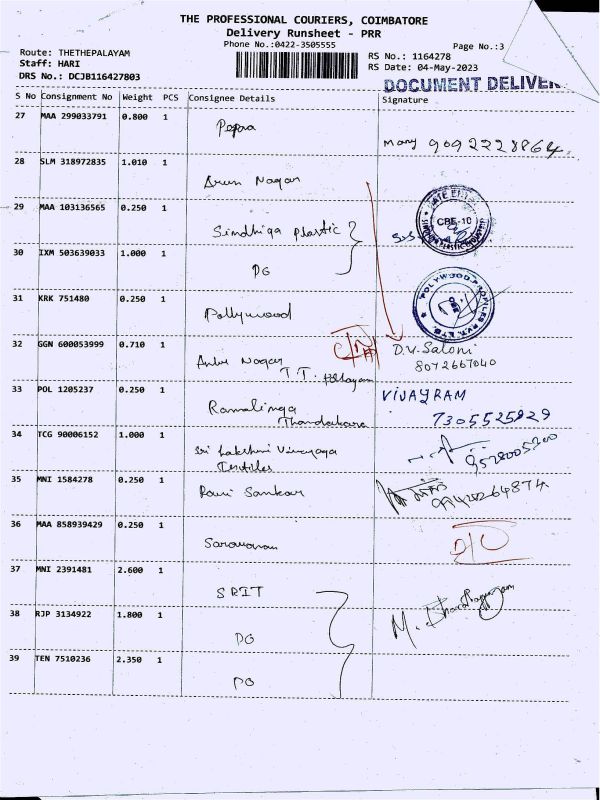 THE PROFESSIONAL COURIERS, COIMBATORE
Delivery Runsheet - PRR
Phone No.:0422-3505555
Page No.:3
Route: THETHEPALAYAM
Staff: HARI
DRS No.: DCJB116427803
RS No.: 1164278
RS Date: 04-May-2023
DOCUMENT DELIVER
S No Consignment No Weight PCS Consignee Details Signature
27 MAA 299033791 0.800 1
many 9092228864
28 SLM 318972835 1.010 1 Arun Nagar
29 MAA 103136565 0.250 1 Sindhiga plastic
CBE-10
30 IXM 503639033 1.000 1 DG
31 KRK 751480 0.250 1 Pollywood
POLYWOOD PROFILES PVT. LTD.
32 GGN 600053999 0.710 1 Anbu Nagar
T.T. Pollayam
D.V. Saloni
8072667040
33 POL 1205237 0.250 1 Ramalinga
VIJAYRAM
7305525929
34 TCG 90006152 1.000 1 Sri Lakshmi Vinayaga
Textiles
9578005200
35 MNI 1584278 0.250 1 Ravi Sankar
36 MAA 858939429 0.250 1 Saravanan
37 MNI 2391481 2.600 1 SRIT
38 RJP 3134922 1.800 1 DG
M.
39 TEN 7510236 2.350 1 DG